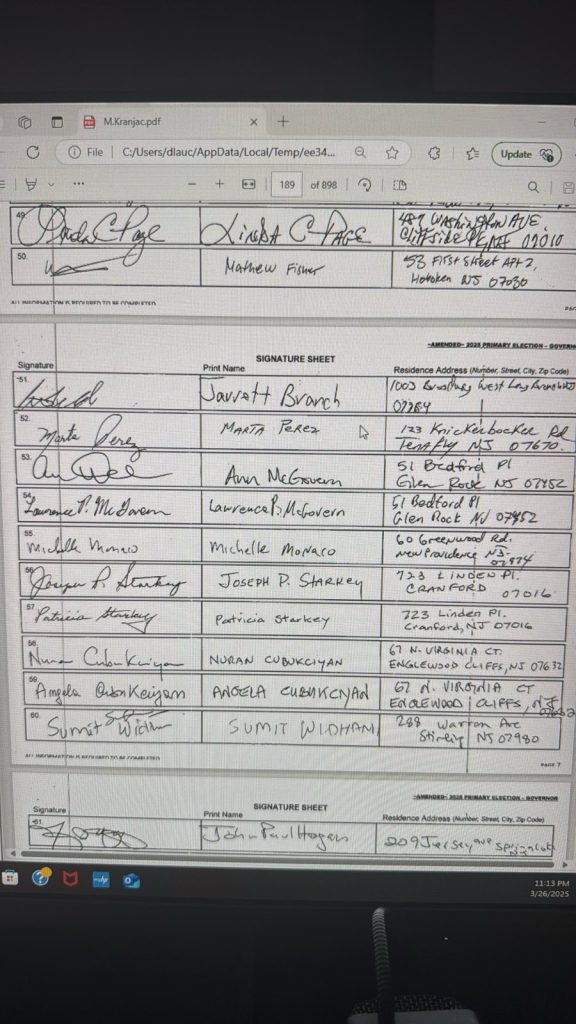 M.Kranjac.pdf
File C:/Users/dlauc/AppData/Local/Temp/ee34...
Update
189 of 898
49. Linda C Page LINDA C PAGE 487 Washington AVE.
Cliffside PK NJ 07010
50. Mathew Fisher 53 First Street APt 2,
Hoboken NJ 07030
ALL INFORMATION IS REQUIRED TO BE COMPLETED
-AMENDED- 2025 PRIMARY ELECTION - GOVERN
SIGNATURE SHEET
Signature Print Name Residence Address (Number, Street, City, Zip Code)
51. Jarrett Branch 1003 Broadway West Long Branch NJ
52. Marta Perez MARTA PEREZ 123 Knickerbocker Rd
Tenafly NJ 07670
53. Ann McGovern 51 Bedford Pl
Glen Rock NJ 07452
54. Lawrence P. McGovern Lawrence P. McGovern 51 Bedford Pl
Glen Rock NJ 07452
55. Michelle Monaco Michelle Monaco 60 Greenwood Rd.
New Providence NJ
07974
56. Joseph P. Starkey JOSEPH P. STARKEY 723 LINDEN Pl.
CRANFORD 07016
57. Patricia Starkey Patricia Starkey 723 Linden Pl.
Cranford, NJ 07016
58. Nuran Cubukciyan NURAN CUBUKCIYAN 67 N. VIRGINIA CT.
ENGLEWOOD CLIFFS, NJ 07632
59. Angela Cubukciyan ANGELA CUBUKCIYAN 67 N. VIRGINIA CT
ENGLEWOOD CLIFFS, NJ
07632
60. Sumit SUMIT WIDHANI 288 Warton Ave
Stirling NJ 07980
ALL INFORMATION IS REQUIRED TO BE COMPLETED
PAGE 7
-AMENDED- 2025 PRIMARY ELECTION - GOVERNOR
SIGNATURE SHEET
Signature Print Name Residence Address (Number, Street, City, Zip Code)
61. John Paul Hogan 209 Jersey ave
11:13 PM
3/26/2025